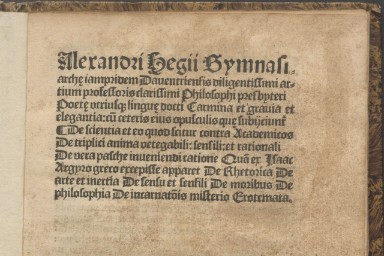 Alexandri Hegii Gymnasi-
archę iampridem Dauentriensis diligentissimi ar-
tium professoris clarissimi Philosophi presbyteri
Poetę vtriusqꝫ linguę docti Carmina et grauia et
elegantia: cū ceteris eius opusculis que subijciunt̄
⁋De scientia et eo quod scitur contra Academicos
De triplici anima vegetabili: sensili: et rationali
De vera pasche inueniendi ratione Quā ex Isaac
Argyro greco excepisse apparet De Rhetorica De
arte et inertia De sensu et sensili De moribus De
philosophia De incarnatōnis misterio Erotemata.